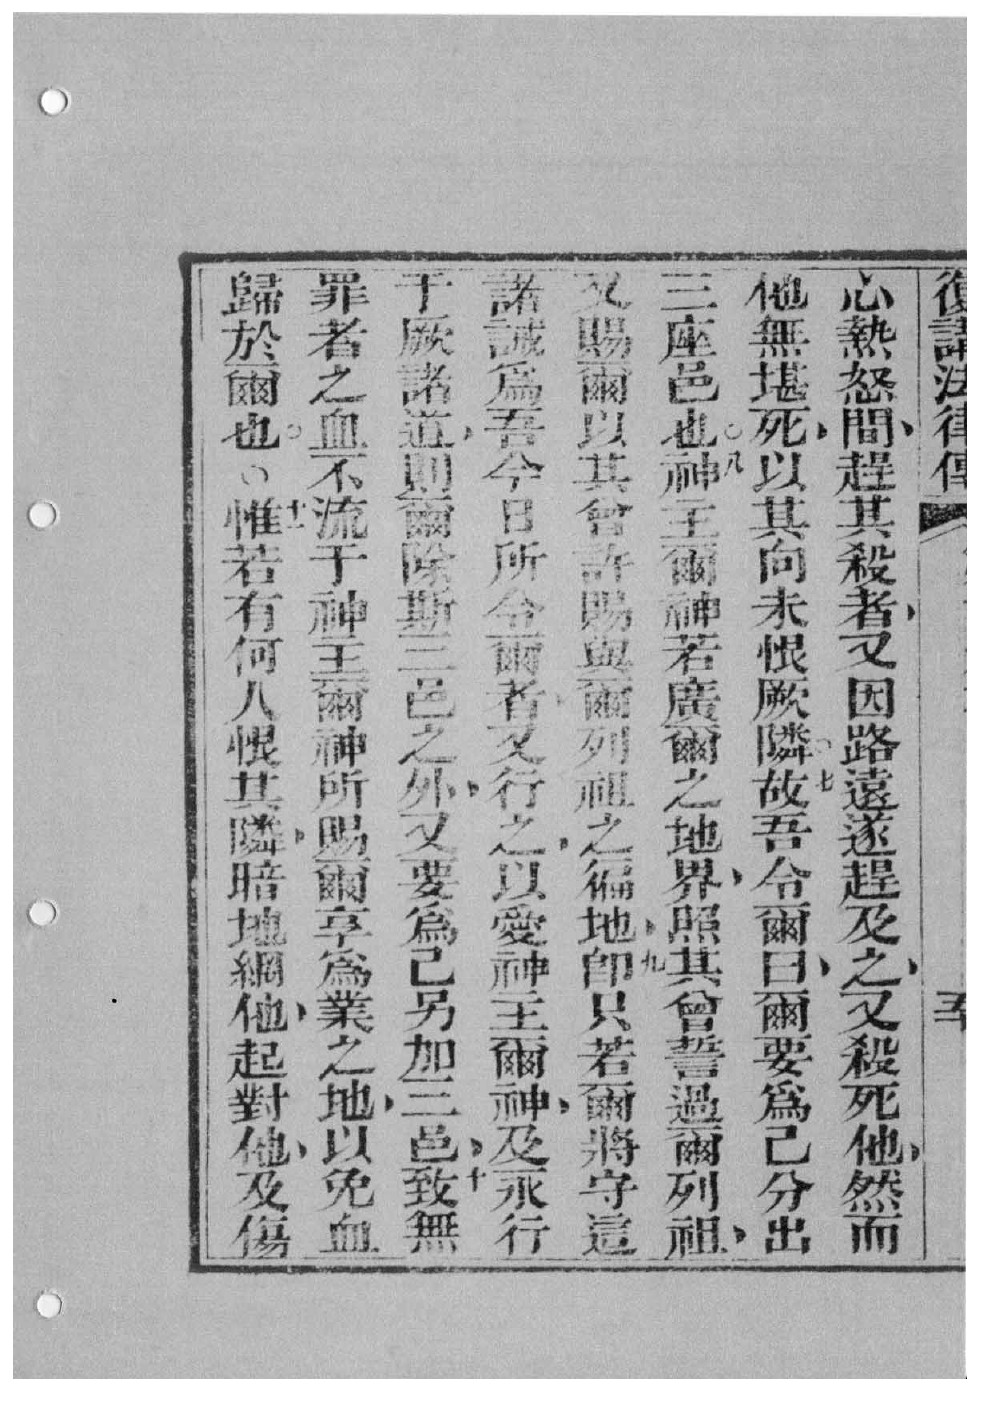 復講法律傳
五
心熱怒間、趕其殺者、又因路遠遂趕及之、又殺死他、然而
他無堪死、以其向未恨厥隣。七故吾令爾曰、爾要爲己分出
三座邑也。八神王爾神若廣爾之地界、照其曾誓過爾列祖、
又賜爾以其曾許賜與爾列祖之徧地、九卽只若爾將守這
諸誡爲吾今日所令爾者、又行之、以愛神王爾神、及永行
于厥諸道、則爾除斯三邑之外、又要爲己另加三邑、十致無
罪者之血不流于神王爾神所賜爾享爲業之地、以免血
歸於爾也。○十一惟若有何人恨其隣、暗地綱他、起對他、及傷